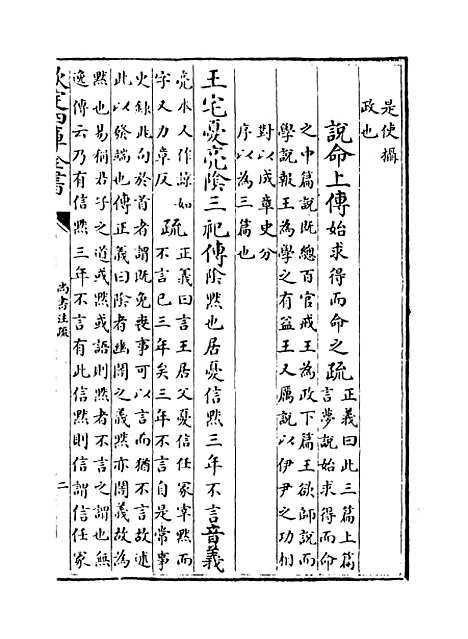 是使攝
政也
說命上傳始求得而命之疏正義曰此三篇上篇
言夢說始求得而命
之中篇說既總百官戒王為政下篇王欲師說而
學說報王為學之有益王又厲說以伊尹之功相
對以成章史分
序以為三篇也
王宅憂亮陰三祀傳陰黙也居憂信黙三年不言音義
亮本又作諒如
字又力章反
疏正義曰言王居父憂信任冡宰黙而
不言已三年矣三年不言自是常事
史錄此句於首者謂既免喪事可以言而猶不言故述
此以發端也傳正義曰陰者幽闇之義黙亦闇義故為
黙也易稱君子之道或黙或語則黙者不言之謂也無
逸傳云乃有信黙三年不言有此信黙則信謂信任冡
欽定四庫全書
尚書注疏
二